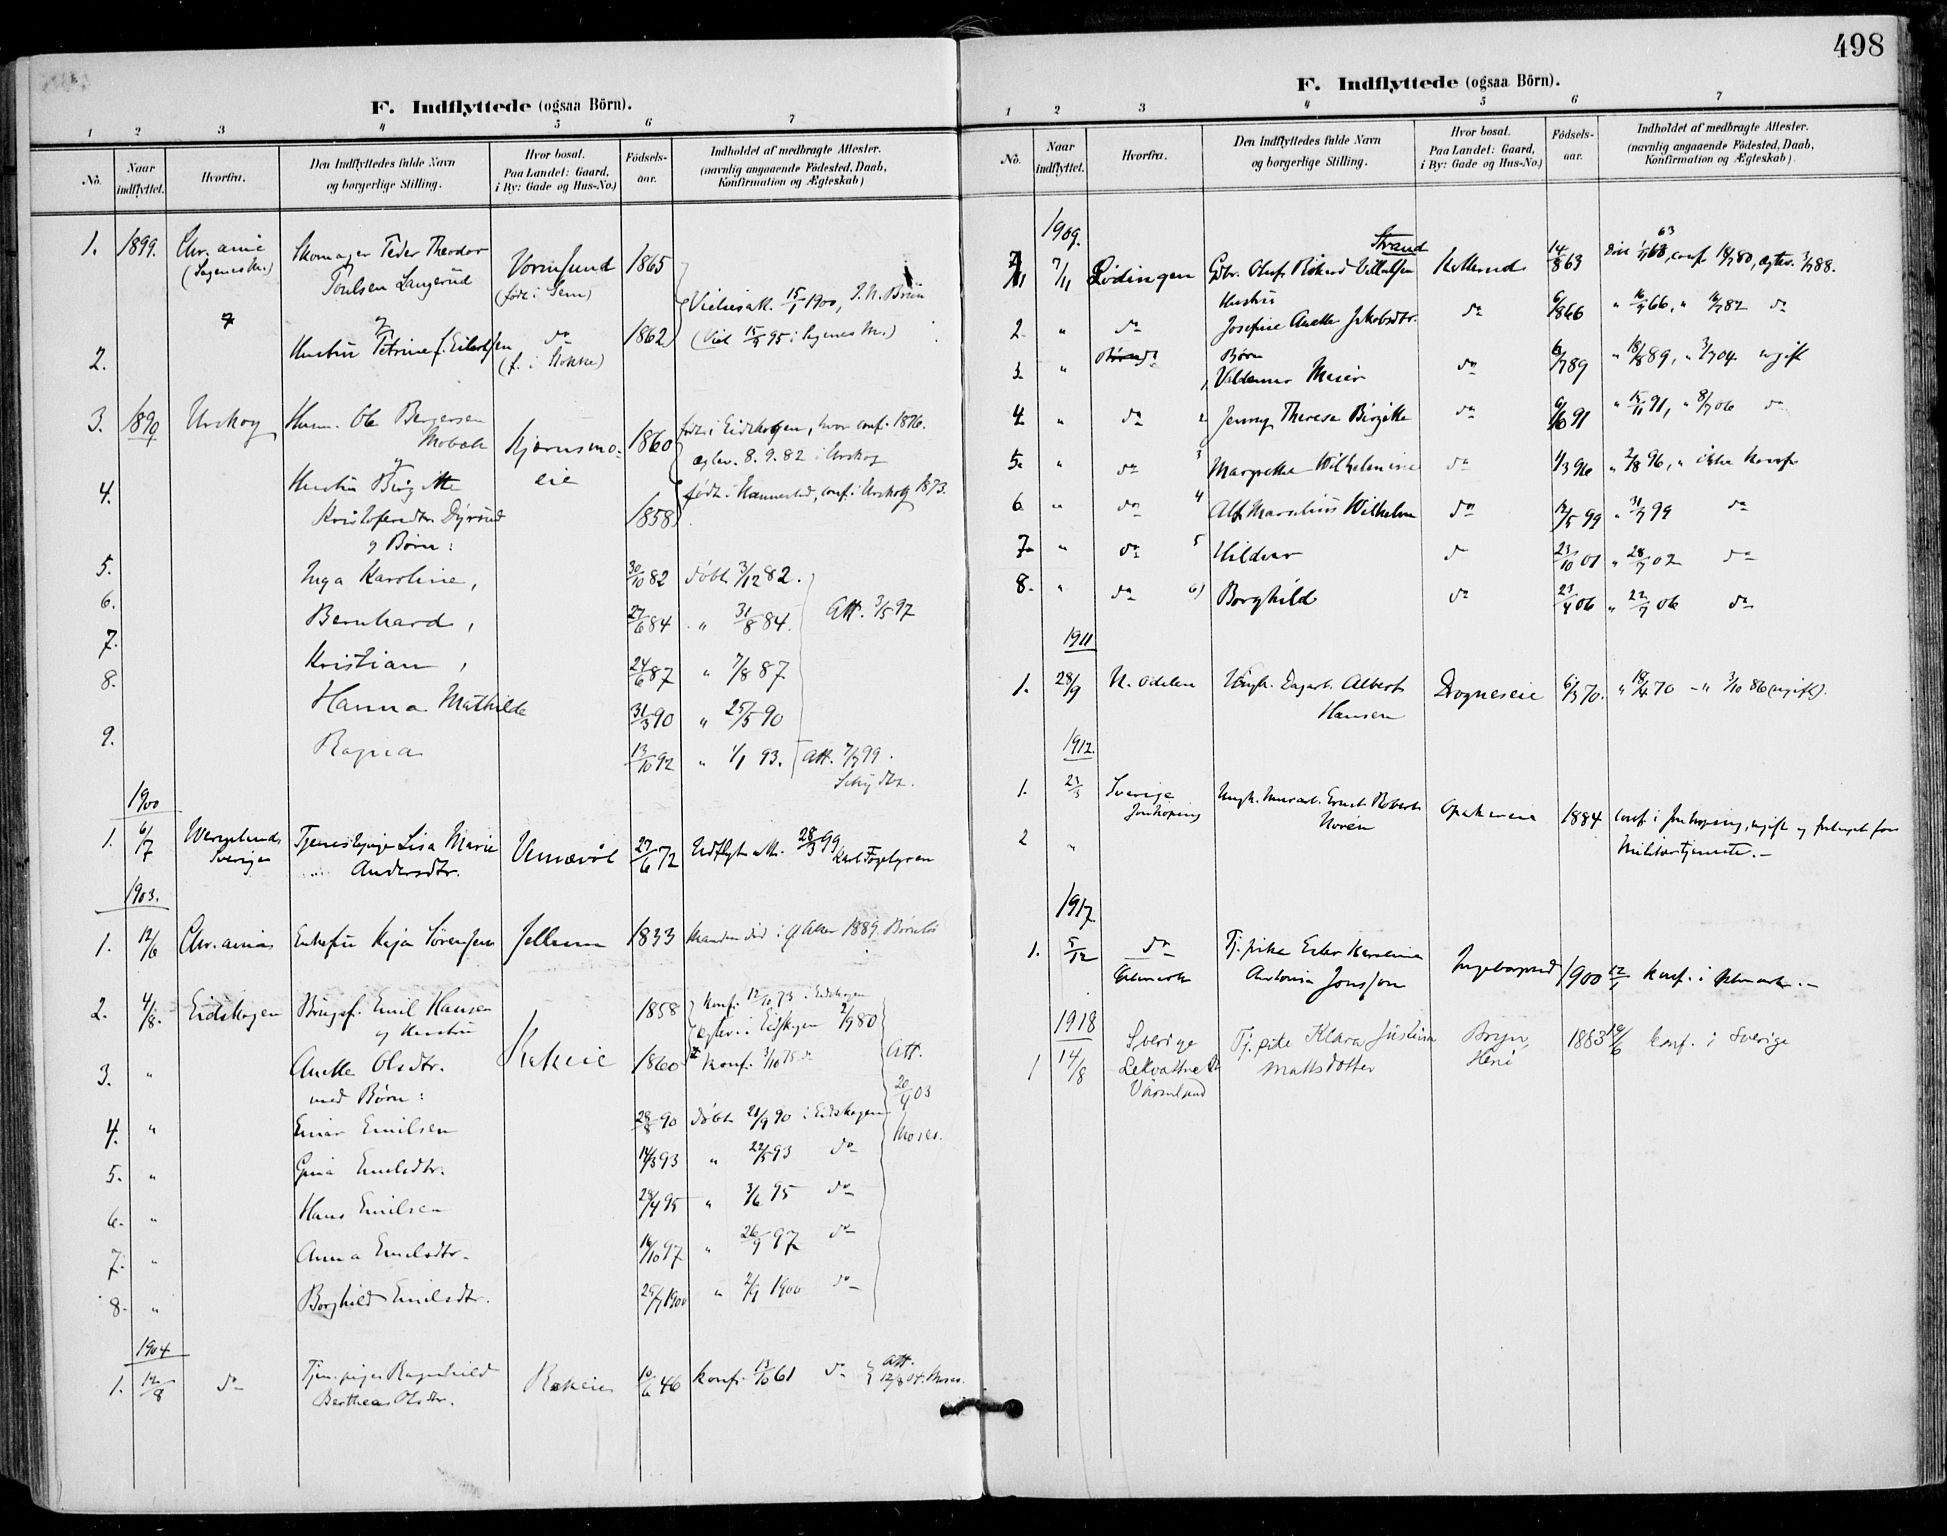 498
F. Indflyttede (ogsaa Börn).
1 2 3 4 5 6 7
No.
Naar indflyttet.
Hvorfra.
Den Indflyttedes fulde Navn
og borgerlige Stilling.
Hvor bosat.
Paa Landet: Gaard,
i By: Gade og Hus-No.)
Födsels-
aar.
Indholdet af medbragte Attester.
(navnlig angaaende Födested, Daab,
Konfirmation og Ægteskab)
1. 1899. Chr.ania Skomager Peder Theodor Vormsund 1865
(Sagenes M.) Poulsen Langerud (født i Gem)
Vielsesatt. 15/1 1900,
2. Hustru Petrine f. Eilertsen do 1862 (Viet 15/9 95 i Sagenes M.)
3. 1897 Urskog Husm. Ole Bergersen 1860 født i Eidskogen, hvor conf. 1876.
Mobæk Kjærnsmo- ægtev. 8.9.82 i Urskog
4. Hustru Birgitte eie født i conf. i Urskog 1873.
Kristofersdtr. Dyrsud 1858
og Børn:
5. Inga Karoline, 30/10 82 døbt 3/12 82.
6. Bernhard, 27/6 84 " 31/8 84. Att. 3/5 97
7. Kristian, 24/6 87 " 7/8 87
8. Hanna Mathilde 31/3 90 " 25/5 90
9. Ragna 13/10 92 " 1/1 93. Att. 7/7 99.
1900
1. 6/7 Wermlands Tjenestepige Lisa Marie 27/6 72 Udflytn.att. 28/3 99
Sverige Andersdtr. Karl Fogelgren
1903.
1. 12/6 Chr.ania Enkefru Kaja Sørensen Jellum 1833 Manden død i Aker 1889. Børnløs
2. 4/8. Eidskogen Brugsf. Emil Hansen 1858 konf. 12/10 73 i Eidskogen
og Hustru ægtev. i Eidskogen 2/7 80
3. " Anette Olsdtr. 1860 konf. 3/10 75 do Att.
med Børn: 20/4 03
4. " Einar Emilsen 28/8 90 døbt 21/9 90 i Eidskogen Moses.
5. " Gina Emilsdtr. 14/3 93 " 22/5 93 do
6. " Hans Emilsen 28/4 95 " 3/6 95 do
7. " Anna Emilsdtr. 16/10 97 " 26/9 97 do
8. " Borghild Emilsdtr. 25/7 1900 " 2/9 1900 do
1904
1. 12/8 do Tjen.pige Ragnhild 10/6 46 konf. 13/10 61 do Att.
Berthea Olsdtr. 12/8 04. Moses.
F. Indflyttede (ogsaa Börn).
1 2 3 4 5 6 7
No.
Naar
indflyttet.
Hvorfra.
Den Indflyttedes fulde Navn
og borgerlige Stilling.
Hvor bosat.
Paa Landet: Gaard,
i By: Gade og Hus-No.)
Födsels-
aar.
Indholdet af medbragte Attester.
(navnlig angaaende Födested, Daab,
Konfirmation og Ægteskab)
1909.
Strand
7/11 Lødingen Gbr. Olaf Rikard Vilhelmsen 14/8 63
Hustru
2. " do Josefine Anette Jakobsdtr. do 6/8 66 do
Børn
3. " do 1 Valdemar Meier do ugift
4. " do 2 Jenny Theresa Birgitte do 6/10 91 " 15/11 91, " 8/7 06 do
5. " do 3 Margrethe Wilhelmine do 1/3 96 " 2/8 96, " ikke konf.
6. " do 4 Alf Marselius Wilhelm do 12/5 99 " 31/7 99 do
7. " do 5 Hildur do 23/10 01 " 28/7 02 do
8. " do 6) Borghild do 23/4 06 " 22/7 06 do
1911
1. 28/9 N. Odalen Ungk. Albert Drogneseie 6/3 70. " 18/4 70 - " 3/10 86 (ugift).
Hansen
1912.
1. 23/3 Sverige Ungk. Murarb. Ernst Robert 1884 conf. i Jönköping, ugift og
Jönköping Norén Militærtjeneste.
2 "
1917.
1. 5/12 do Tj.pike Ester Karolina Ingeborgrud 1900 12/1 konf. i
Antonia Jonsson
1918
1 14/8 Sverige Tj.pike Klara Justina 1883 19/6 konf. i Sverige
Lekvattnet Mattsdotter
Värmland